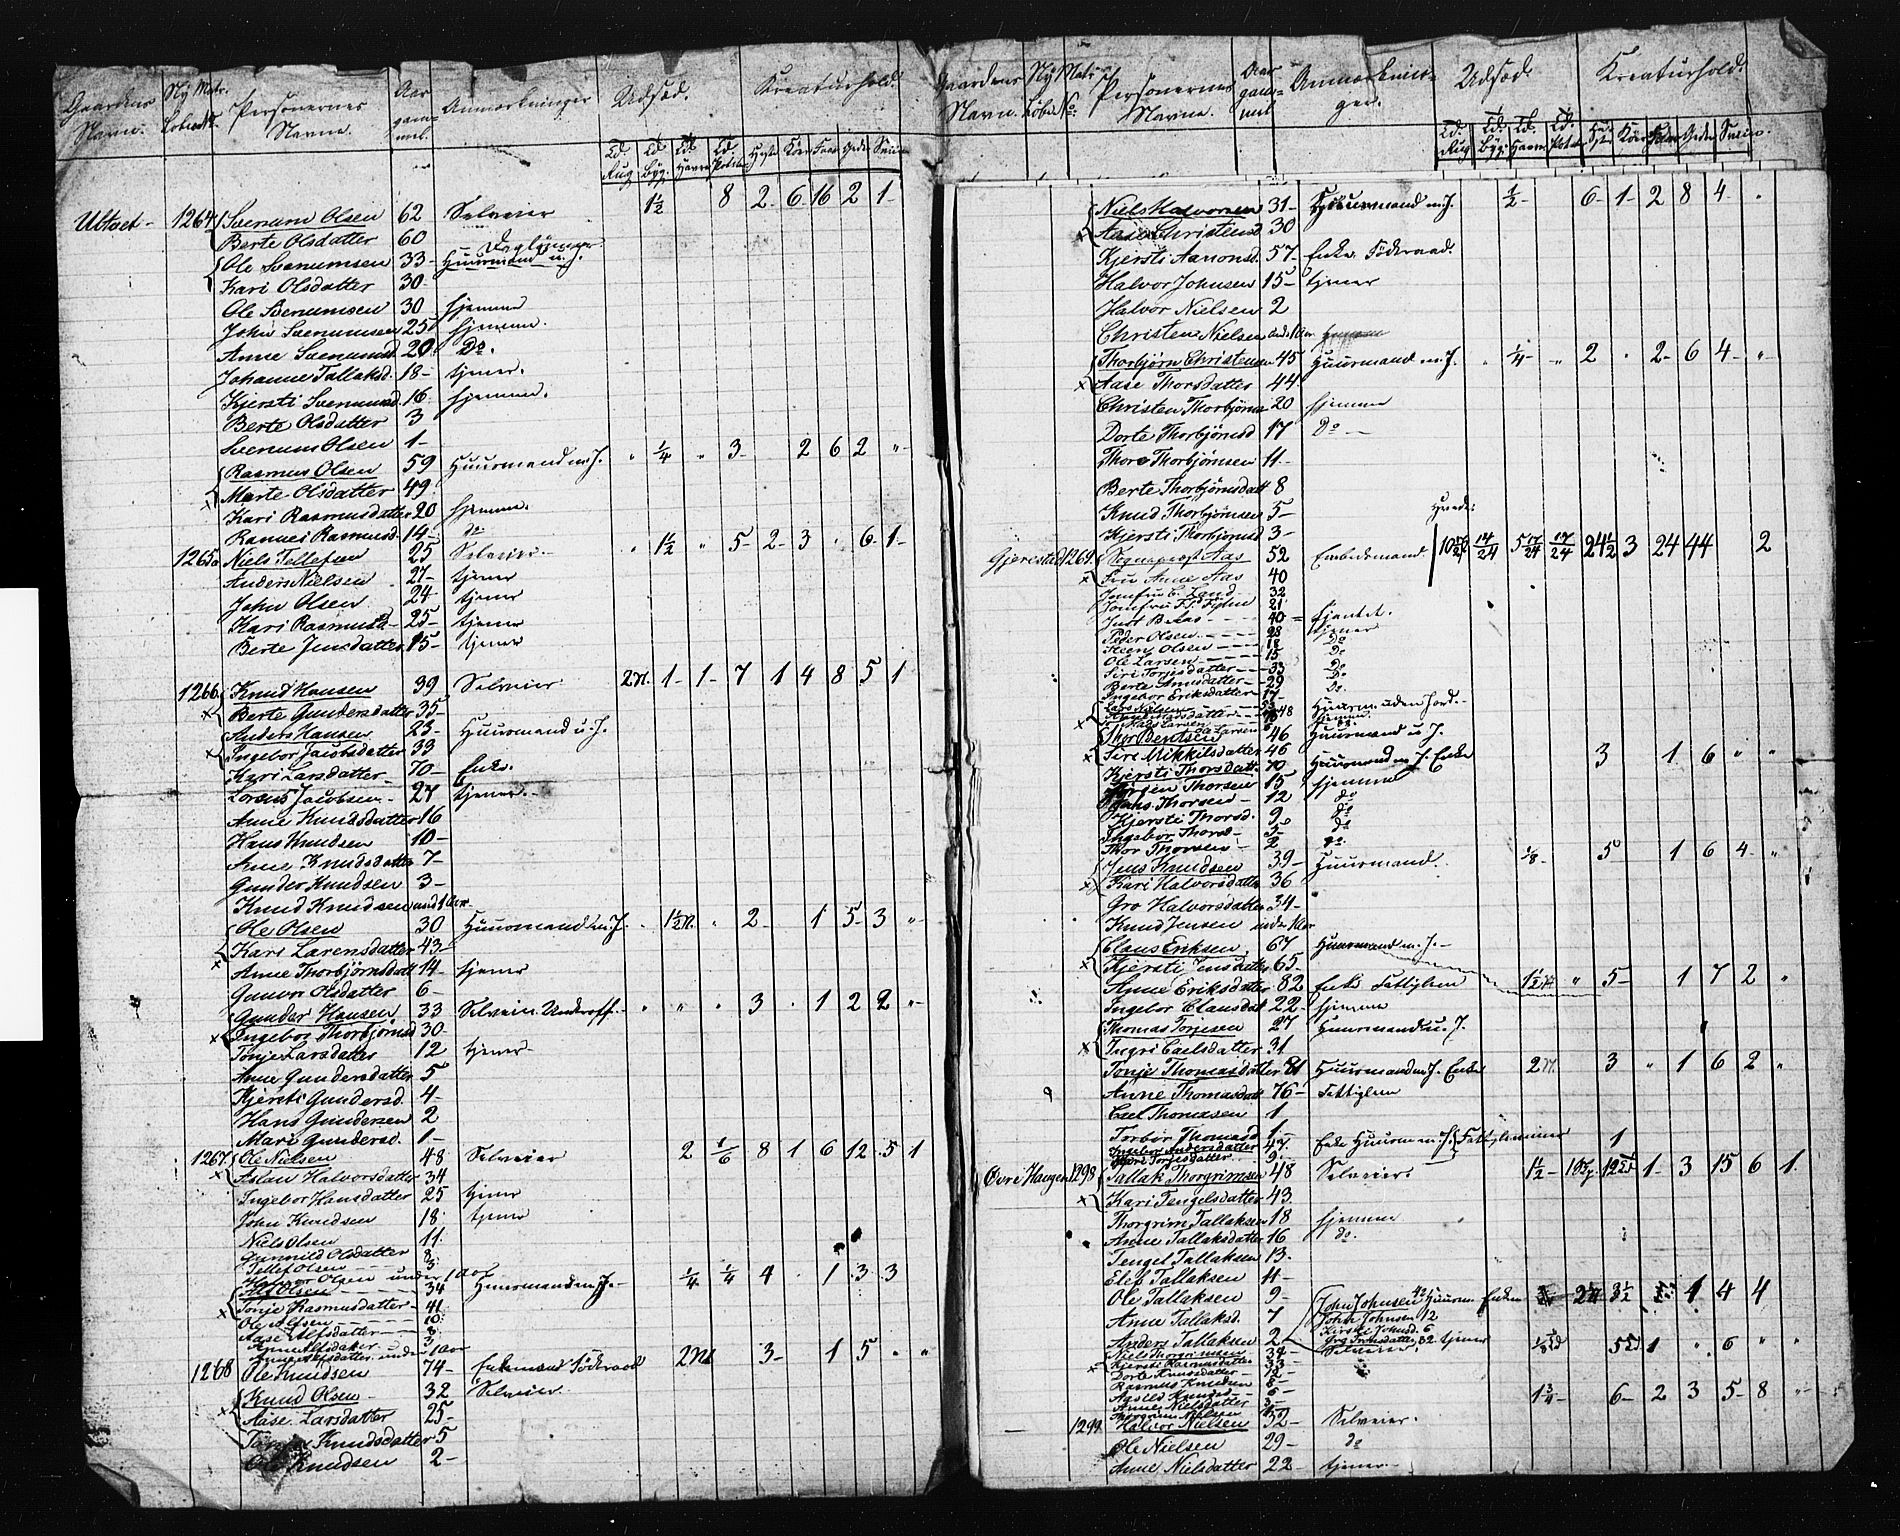 Gaardens Navn. Ny Matr. Löbe No. Personernes Navne. Aar gammel. Anmærkninger Udsæd. Kreaturhold.
Td. Rug Td. Byg. Td. Havre Td. Poteter Heste Köer Faar Geder Sviin
Ubtvet - 1264 Svenum Olsen 62 Selveier 1½ 8 2 6 16 2 1
Berte Olsdatter 60
Ole Svenumsen 33 Huusmand u. J. Daglönner
Kari Olsdatter 30
Ole Svenumsen 30 hjemme
John Svenumsen 25 hjemme.
Anne Svenumsd. 20 Do.
Johanne Tallaksd. 18 tjener.
Kjersti Svenumsd. 16 hjemme.
Berte Olsdatter 3
Svenum Olsen 1
Rasmus Olsen 59 Huusmand m. J. " ¼ " 3 2 6 2 "
Marte Olsdatter 49
Kari Rasmusdatter 20 hjemme.
Rasmus d. 14 do
1265 Niels Tellefsen 25 Selveier " 1½ " 5 2 3 " 6 1
Anders Nielsen 27 tjener
John Olsen 24 tjener
Kari Rasmusd 25 tjener
Berte Jensdatter 15 tjener
1266 Knud Hansen 39 Selveier 2 1 1 7 1 4 8 5 1
Berte Gundersdatter 35
Anders Hansen 23 Huusmand u. J.
Ingebor Jacobsdatter 33
Kari Larsdatter 70 Enke.
Jacobsen 27 tjener.
Anne Knudsdatter 16
Hans Knudsen 10
Anne Knudsdatter 7
Gunder Knudsen 3
Knud Knudsen und 1 Aar
Ole Olsen 30 Huusmand m. J. 1½ " 2 1 5 3 "
Kari Larensdatter 43
Anne Thorbjörnsdatt 14 tjener
Gunvor Olsdatter 6
Gunder Hansen 33 Selveier. Underoff. " " " 3 . 1 2 2 "
Ingebor Thorbjörnsd 30
Tonje Larsdatter 12 tjener
Anne Gundersdatter 5
Kjersti Gundersd. 4
Hans Gundersen 2
Mari Gundersd. 1
1267 Ole Nielsen 48 Selveier 2 1/6 8 1 6 12 5 1
Aslau Halvorsdatter 34
Ingebor Hansdatter 25 tjener
John Knudsen 18 tjener
Niels Olsen 11
Gunnild Olsdatter 8
Tellef Olsen 3
Halvor Olsen under 1 Aar
Alf Olsen 34 Huusmand m. J. ¼ ¼ 4 . 1 3 3
Tonje Rasmusdatter 41
Ole Alfsen 10
Aase Alfsdatter 8
Anne Alfsdatter 3
Alfsdatter under 1 Aar
1268 Ole Knudsen 74 Enkemand Föderaad 2 3 1 5 " "
Knud Olsen 32 Selveier
Aase Larsdatter 25
Knudsdatter 5
Ole Knudsen 2
Gaardens Navn. Ny Matr. Löbe No. Personernes Navne. Aar gammel Anmærkninger. Udsæd. Kreaturhold.
Td. Rug Td. Byg. Td. Havre Td. Potet Heste Köer Faar Geder Sviin.
Niels Halvorsen 31 Huusmand m. J. ½ 6 1 2 8 4 "
Aase Christensd 30
Kjersti Aanonsd. 57 Enke Föderaad.
Halvor Johnsen 15 tjener
Halvor Nielsen 2
Christen Nielsen und. 1 Aar
Thorbjörn Christensen 45 Huusmand m. J. " ¼ " 2 " 2 6 4 "
Aase Thorsdatter 44
Christen Thorbjörns 20 hjemme
Dorte Thorbjörnsd 17 Do
Thore Thorbjörnsen 11
Berte Thorbjörnsdatt 8
Knud Thorbjörnsen 5
Kjersti Thorbjörnsd 3
Gjerestad 1269 Sogneprest Aas 52 Embedsmand 14/24 5 17/24 24½ 3 24 44 2
Fru Anne Aas 40
Jomfru E. Lund 32
Jomfru 21
Just B. Aas 40
Peder Olsen 28 tjener
Steen Olsen 18 Do
Ole Larsen 15 Do
Siri Torjesdatter 33 Do
Berte Arnsdatter 29 Do
Ingebor Eriksdatter 17 Do.
Lars Nielsen Huusm. uden Jord.
Mads Larsen
Thor Berntsen 46 Huusmand u. J.
Siri Mikkelsdatter 46
Kjersti Thorsdatt. 70 Huusmand m. J. Enke 3 1 6 " "
Jörgen Thorsen 15 hjemme
Hans Thorsen 12 do
Kjersti Thorsd. 9 do
Ingebor Thorsd 5 do
Thor Thorsen 2 do.
Jens Knudsen 39 Huusmand. 1/8 5 1 6 4 "
Kari Halvorsdatter 36
Gro Halvorsdatter 34
Knud Jensen under 1 Aar
Claus Eriksen 67 Huusmand m. J.
Kjersti Jensdatter 65
Anne Eriksdatter 82 Enke Fattiglem 1½ " 5 1 7 2 "
Ingebor Clausdat 22 hjemme
Thomas Torjesen 27 Huusmand u. J.
Ingri Carlsdatter 31
Tonje Thomasdatter 81 Huusmand m. J. Enke 2 3 " 1 6 2 "
Anne Thomasdatt 76 Fattiglem
Carl Thomasen 1
Torbor Thomasd 1
Ingebor Andersdatter 47 Enke Huusm. m. J. Fattiglemmer 1
Torjesdatter 9
Övre Haugen 1298 Tallak Thorgrimsen 48 Selveier. 1½ 1 3 15 6 1
Kari Tengelsdatter 43
Thorgrim Tallaksen 18 hjemme
Anne Tallaksdatter 16 do.
Tengel Tallaksen 13
Elef Tallaksen 11
Ole Tallaksen 9
Anne Tallaksd. 7
Anders Tallaksen 2
John Johnsen 42 Huusm. Enkem 3½ 1 4 4
John Johnsen 12
Kirsti Johnsd. 6
datter 32 tjener
Niels Thorgrimsen 34 Selveier. 1 " 6 " "
Kjersti Rasmusdatter 33
Dorte Knudsdatter 12
Rasmus Knudsen 8
Knudsd 6
Anne Nielsdatter 3
Thorgrim Nielsen
1299 Halvor Nielsen 32 Selveier. 1¾ 6 2 3 5 8 "
Ole Nielsen 29 do
Anne Nielsdatter 22 tjener